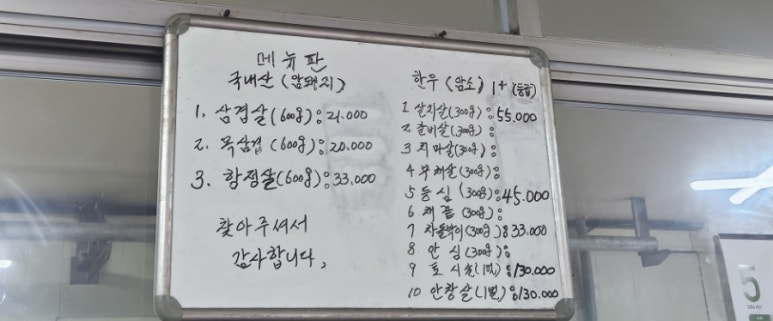 메뉴판
국내산 (암돼지)
1. 삼겹살 (600g) : 21.000
2. 목삼겹 (600g) : 20.000
3. 항정살 (600g) : 33.000
찾아주셔서
감사합니다,
한우 (암소) 1+ (등급)
1 살치살 (300g) : 55.000
2 준비살 (300g) :
3 치마살 (300g) :
4 부채살 (300g) :
5 등심 (300g) : 45.000
6 채끝 (300g) :
7 차돌박이 (300g) : 33.000
8 안심 (300g) :
9 토시살 (1벌) : 130.000
10 안창살 (1벌) : 130.000
5